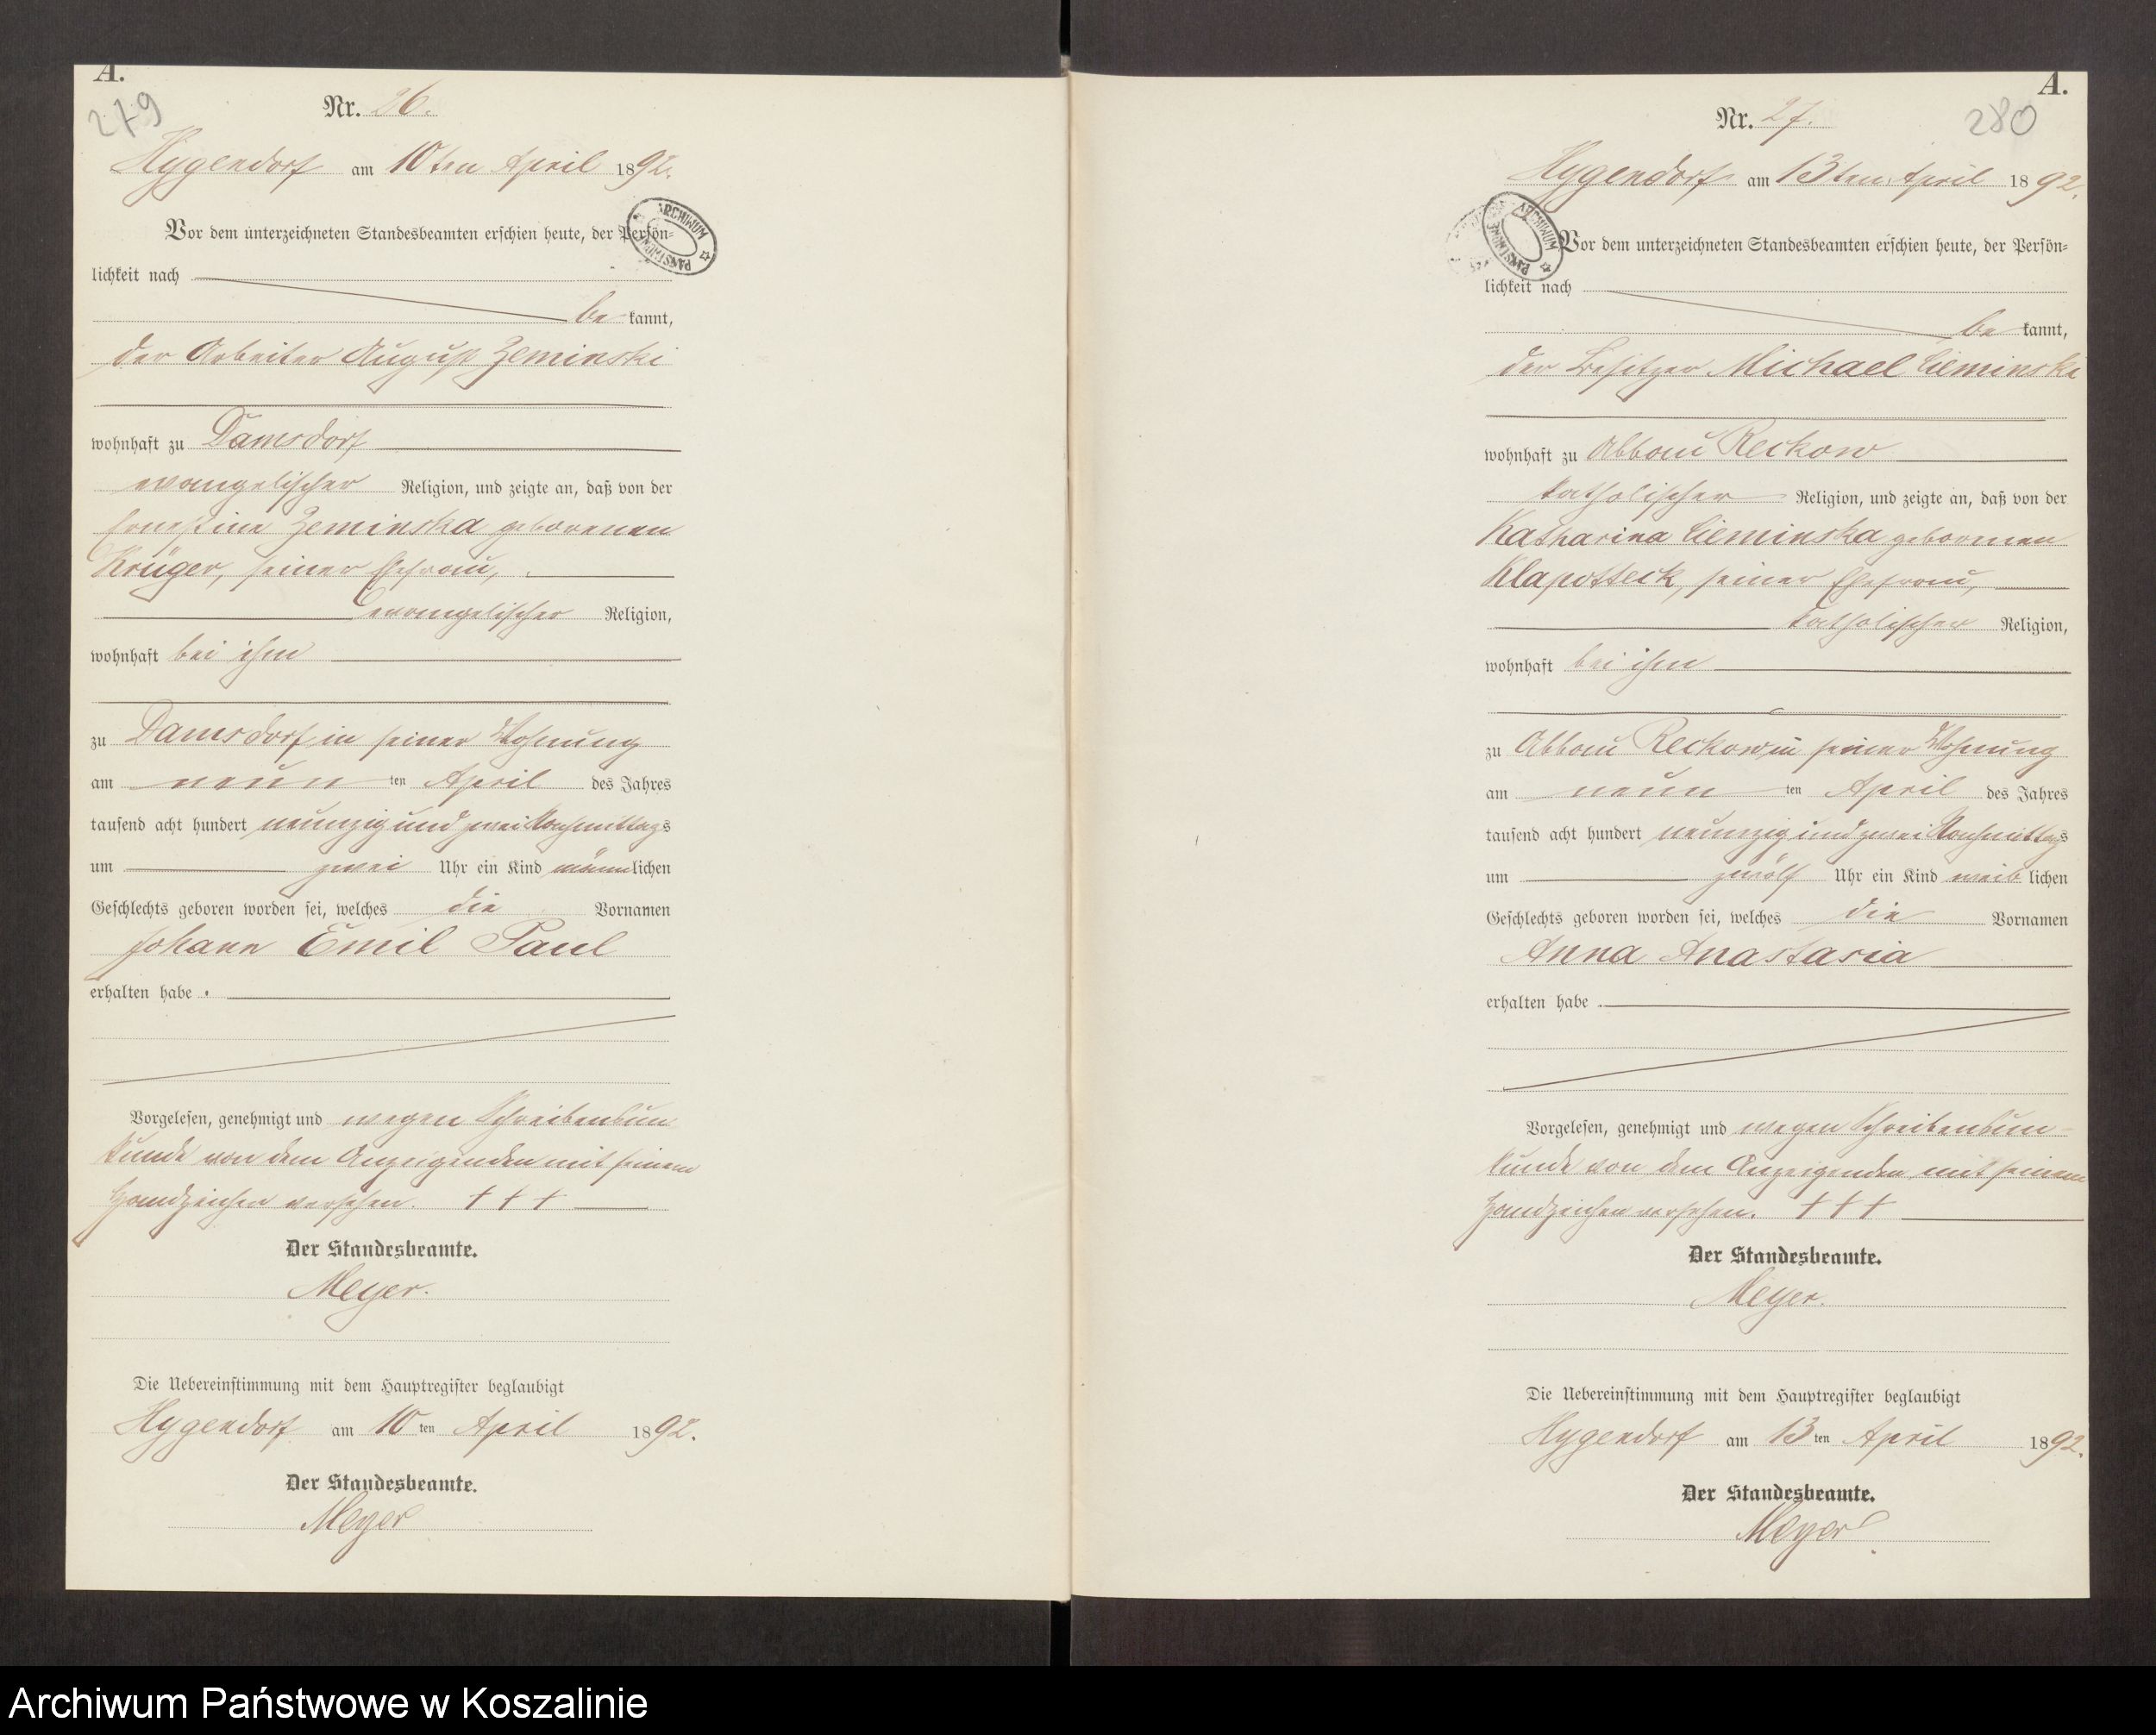 A.
279
Nr. 26.
Hygendorf am 10ten April 1892.
Vor dem unterzeichneten Standesbeamten erschien heute, der Persön=
lichkeit nach
be kannt,
der Arbeiter August Zeminski
wohnhaft zu Damsdorf
evangelischer Religion, und zeigte an, daß von der
Ernestine Zeminska geborenen
Krüger, seiner Ehefrau,
evangelischer Religion,
wohnhaft bei ihm
zu Damsdorf in seiner Wohnung
am neun ten April des Jahres
tausend acht hundert neunzig und zwei Nachmittags
um zwei Uhr ein Kind männlichen
Geschlechts geboren worden sei, welches die Vornamen
Johann Emil Paul
erhalten habe.
Vorgelesen, genehmigt und wegen Schreibensun
kunde von dem Anzeigenden mit seinem
Handzeichen versehen. +++
Der Standesbeamte.
Meyer.
Die Uebereinstimmung mit dem Hauptregister beglaubigt
Hygendorf am 10 ten April 1892.
Der Standesbeamte.
Meyer
ARCHIWUM PAŃSTWOWE
A.
280
Nr. 27.
Hygendorf am 13ten April 1892.
ARCHIWUM PAŃSTWOWE
Vor dem unterzeichneten Standesbeamten erschien heute, der Persön=
lichkeit nach
be kannt,
der Besitzer Michael Cieminski
wohnhaft zu Abbau Reckow
katholischer Religion, und zeigte an, daß von der
Katharina Cieminska geborenen
Klapotteck, seiner Ehefrau,
katholischer Religion,
wohnhaft bei ihm
zu Abbau Reckow in seiner Wohnung
am neun ten April des Jahres
tausend acht hundert neunzig und zwei Nachmittags
um zwölf Uhr ein Kind weib lichen
Geschlechts geboren worden sei, welches die Vornamen
Anna Anastasia
erhalten habe.
Vorgelesen, genehmigt und wegen Schreibensun-
kunde von dem Anzeigenden mit seinem
Handzeichen versehen. +++
Der Standesbeamte.
Meyer.
Die Uebereinstimmung mit dem Hauptregister beglaubigt
Hygendorf am 13 ten April 1892.
Der Standesbeamte.
Meyer
Archiwum Państwowe w Koszalinie